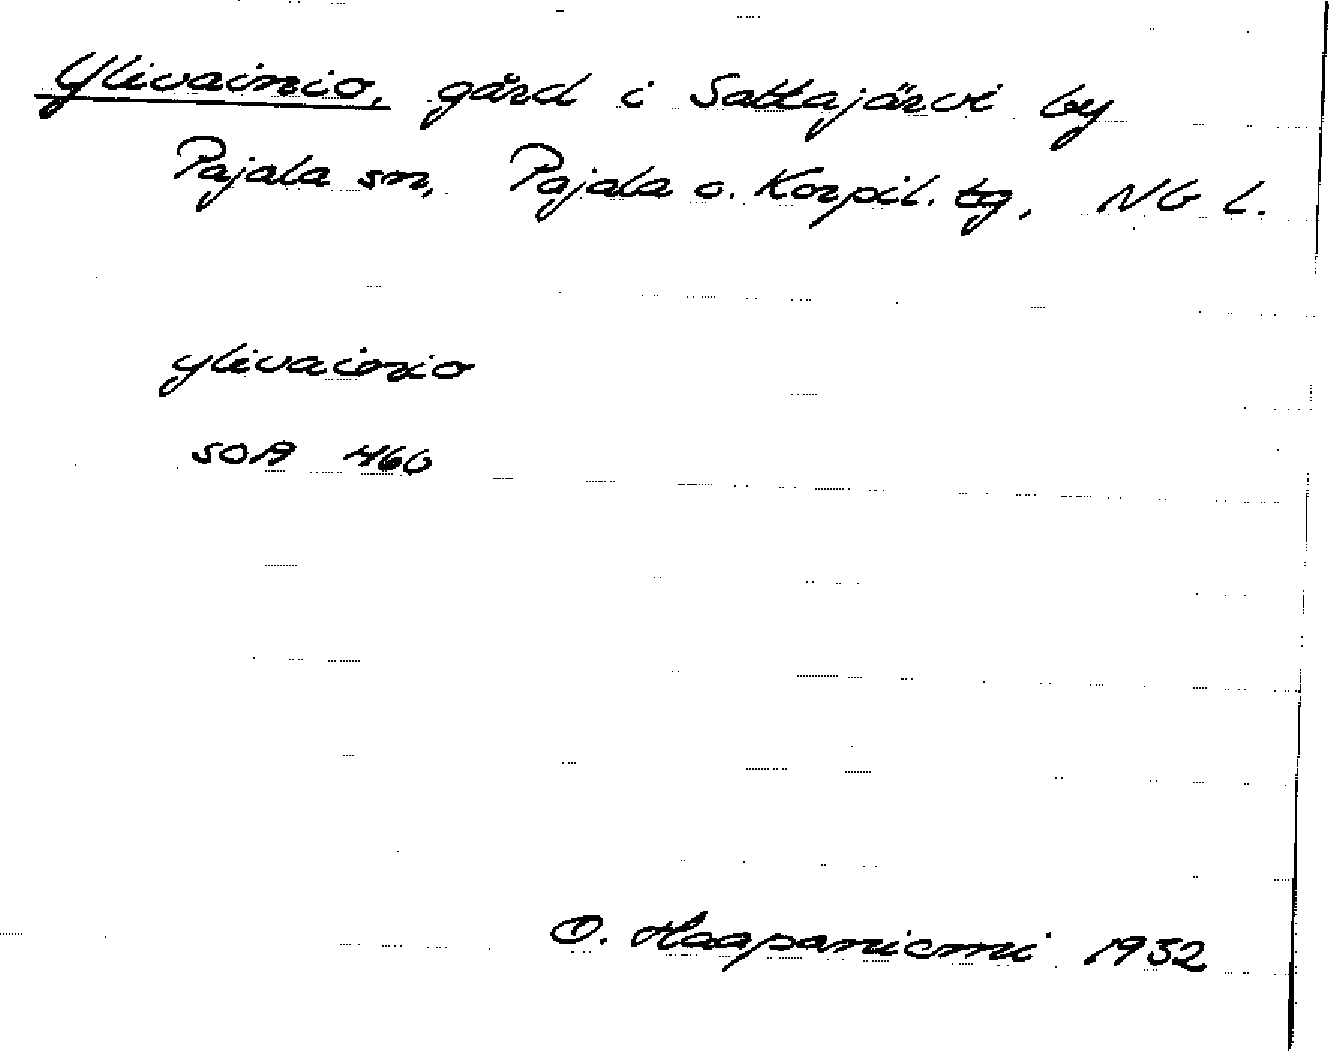 Ylivainio, gård i Sattajärvi by
Pajala sn, Pajala o. Korpil. tg, NB L.
ylivainio
SOA 460
O. Haapaniemi 1932